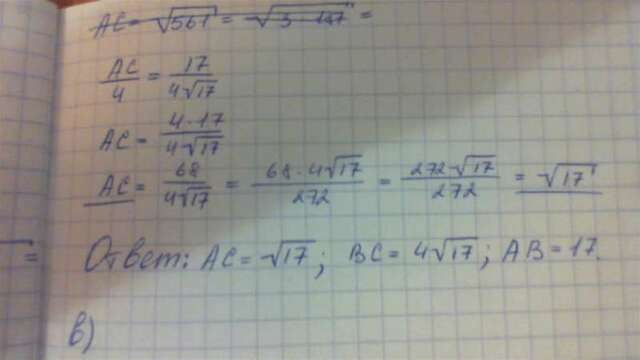 AC = √561 = √3·187 =
AC/4 = 17/4√17
AC = 4·17/4√17
AC = 68/4√17 = 68·4√17/272 = 272√17/272 = √17
=
Ответ: AC = √17; BC = 4√17; AB = 17.
в)